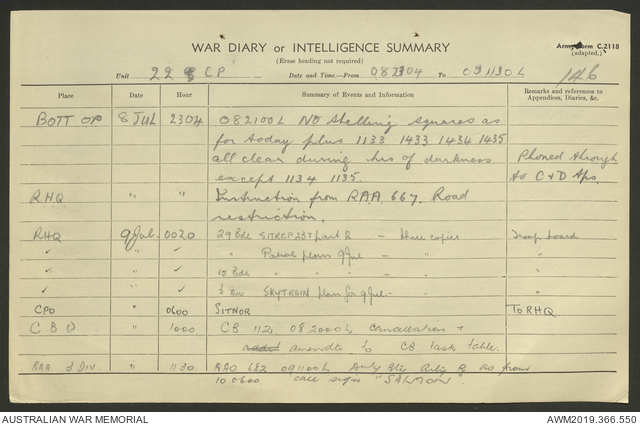 Army Form C.2118
WAR DIARY or INTELLIGENCE SUMMARY (adapted.)
(Erase heading not required)
Unit 22 CP Date and Time.—From 082304 To 091130L 146
Place Date Hour Summary of Events and Information Remarks and references to Appendices, Diaries, &c.
BOTT OP 8 JUL 2304 082100L NO Shelling squares as
for today plus 1133 1433 1434 1435
all clear during hrs of darkness Phoned through
except 1134 1135. to C & D
RHQ " " Instruction from RAA 667. Road
restriction.
RHQ 9 Jul. 0020 29 Bde SITREP 237 part 2 - three copies Troop board
✓ " ✓ " Patrol plans 9 Jul - " "
✓ " ✓ 15 Bde " " - " "
✓ " ✓ SKYTRAIN plan for 9 Jul. - "
CPO " 0600 SITNOR To RHQ
C B O " 1000 CB 112 082000L Cancellation +
amendts to CB task table.
RAA 3 DIV " 1130 RAO 682 091100L Duty Bty from
100600 call sign "SALMON"
AUSTRALIAN WAR MEMORIAL AWM2019.366.550